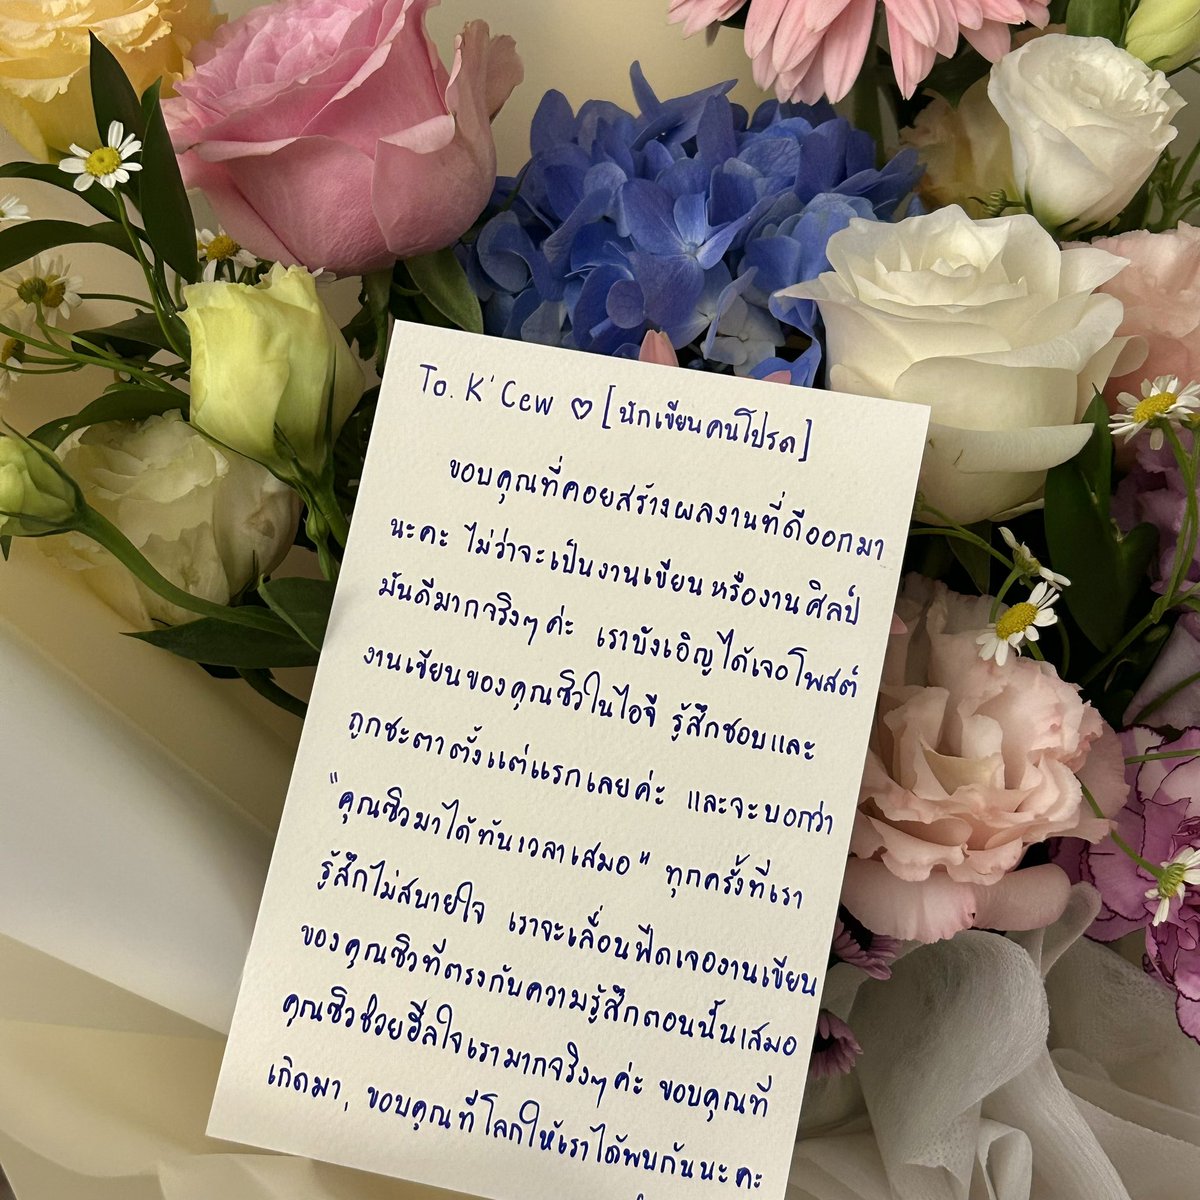 To. K'Cew ♡ [นักเขียนคนโปรด]
ขอบคุณที่คอยสร้างผลงานที่ดีออกมา
นะคะ ไม่ว่าจะเป็นงานเขียนหรืองานศิลป์
มันดีมากจริงๆค่ะ เราบังเอิญได้เจอโพสต์
งานเขียนของคุณซิวในไอจี รู้สึกชอบและ
ถูกชะตาตั้งแต่แรกเลยค่ะ และจะบอกว่า
"คุณซิวมาได้ทันเวลาเสมอ" ทุกครั้งที่เรา
รู้สึกไม่สบายใจ เราจะเลื่อนฟีดเจองานเขียน
ของคุณซิวที่ตรงกับความรู้สึกตอนนั้นเสมอ
คุณซิวช่วยฮีลใจเรามากจริงๆค่ะ ขอบคุณที่
เกิดมา, ขอบคุณที่โลกให้เราได้พบกันนะคะ